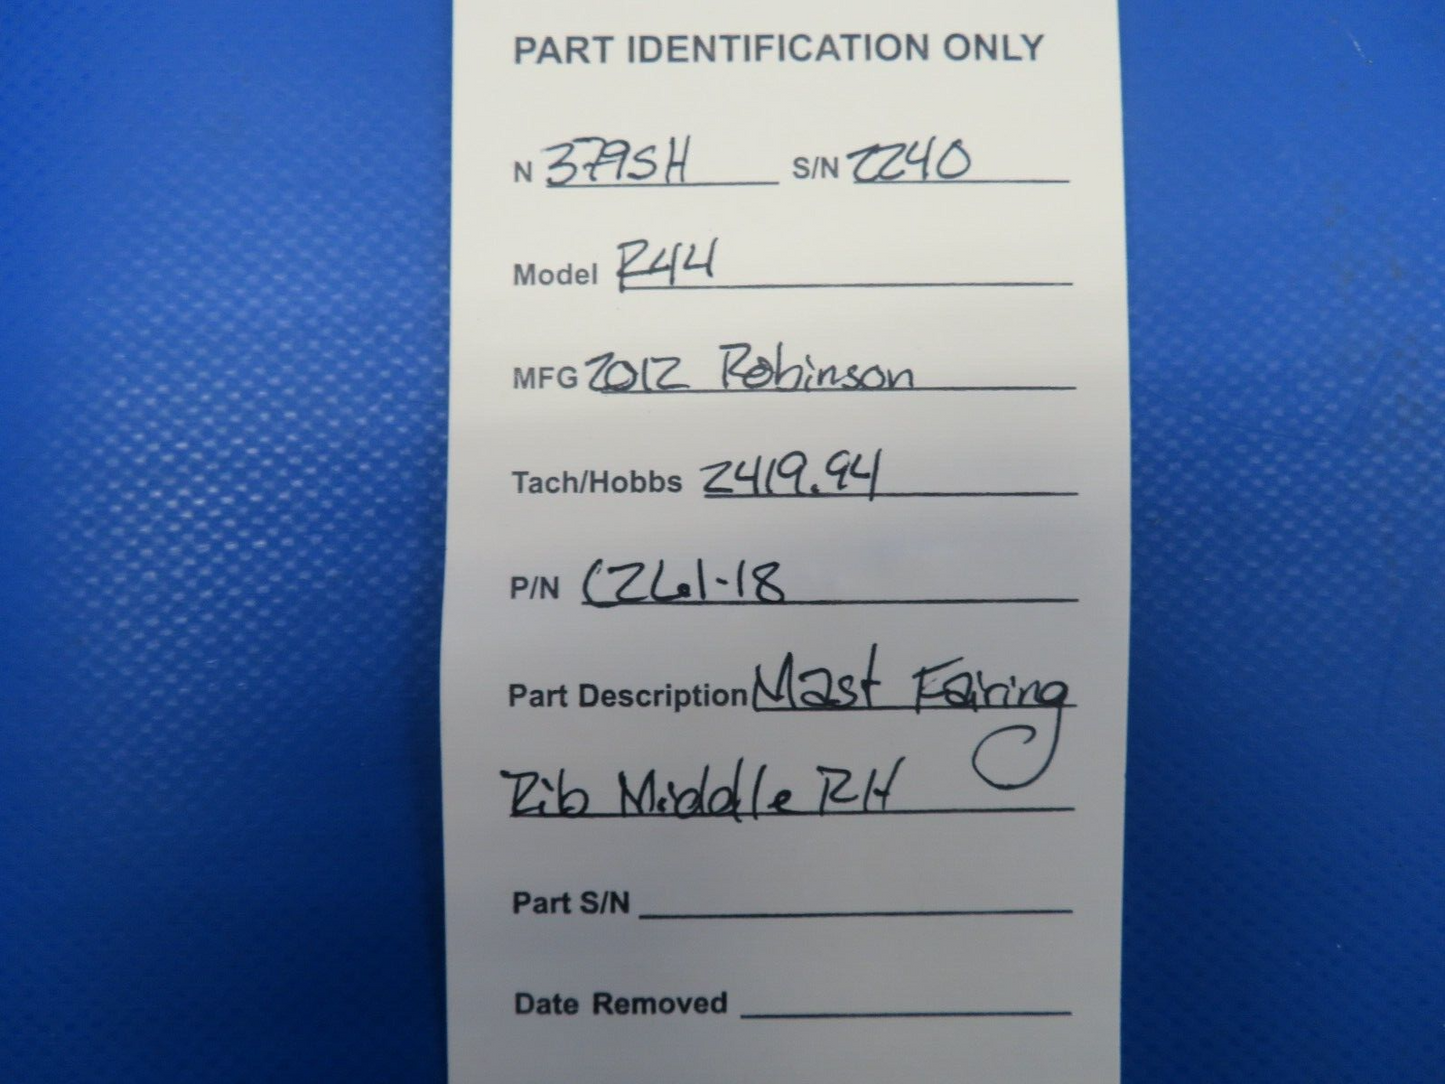 PART IDENTIFICATION ONLY
N 379SH S/N 2240
Model R44
MFG 2012 Robinson
Tach/Hobbs 2419.94
P/N C261-18
Part Description Mast Fairing
Rib Middle RH
Part S/N
Date Removed